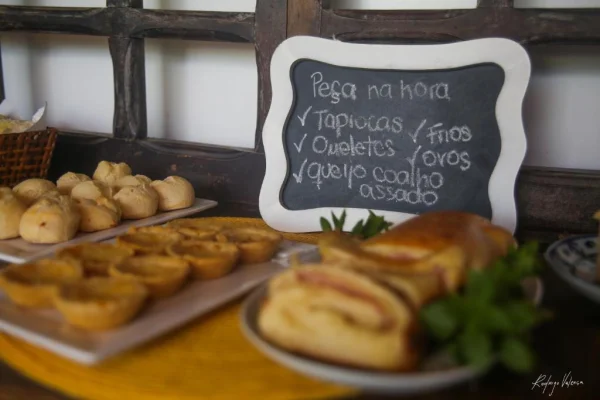 Peça na hora
✓ Tapiocas ✓ Frios
✓ Oueletes ✓ ovos
✓ queijo coalho
assado
Rodrigo Valença